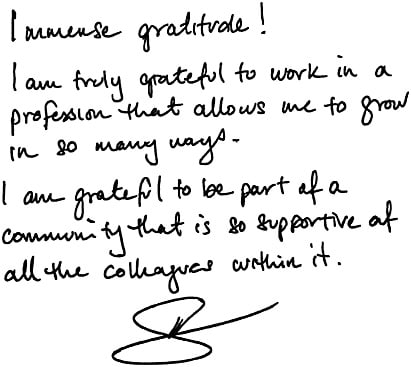 Immense gratitude!
I am truly grateful to work in a
profession that allows me to grow
in so many ways.
I am grateful to be part of a
community that is so supportive of
all the colleagues within it.